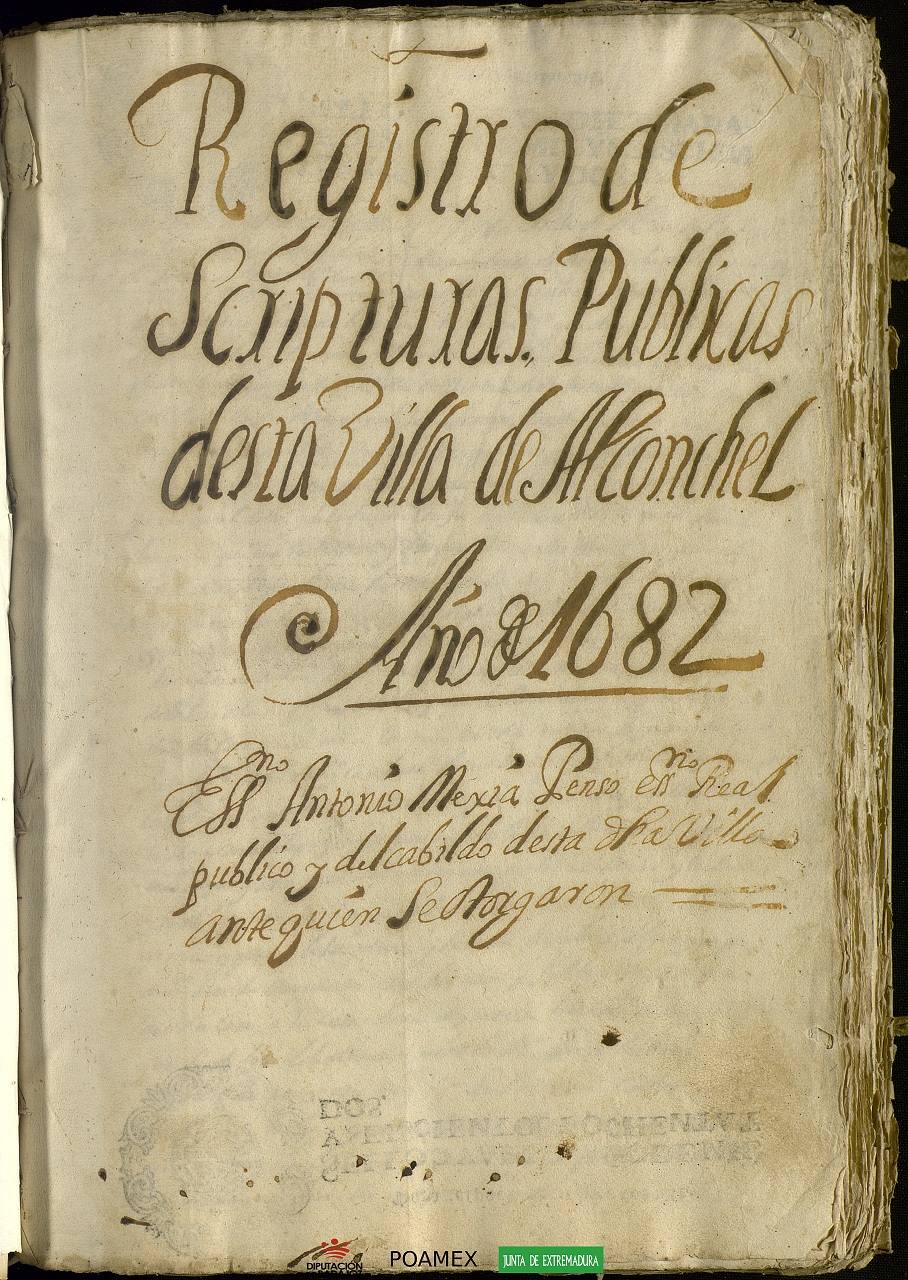 Registro de
Scripturas. Publicas
desta Villa de Alconchel
Año de 1682
Essno Antonio Mexia Penso essno Real
publico y del cabildo desta dha Villa
ante quien Se Otorgaron
DOS
DIPUTACIÓN
POAMEX
JUNTA DE EXTREMADURA